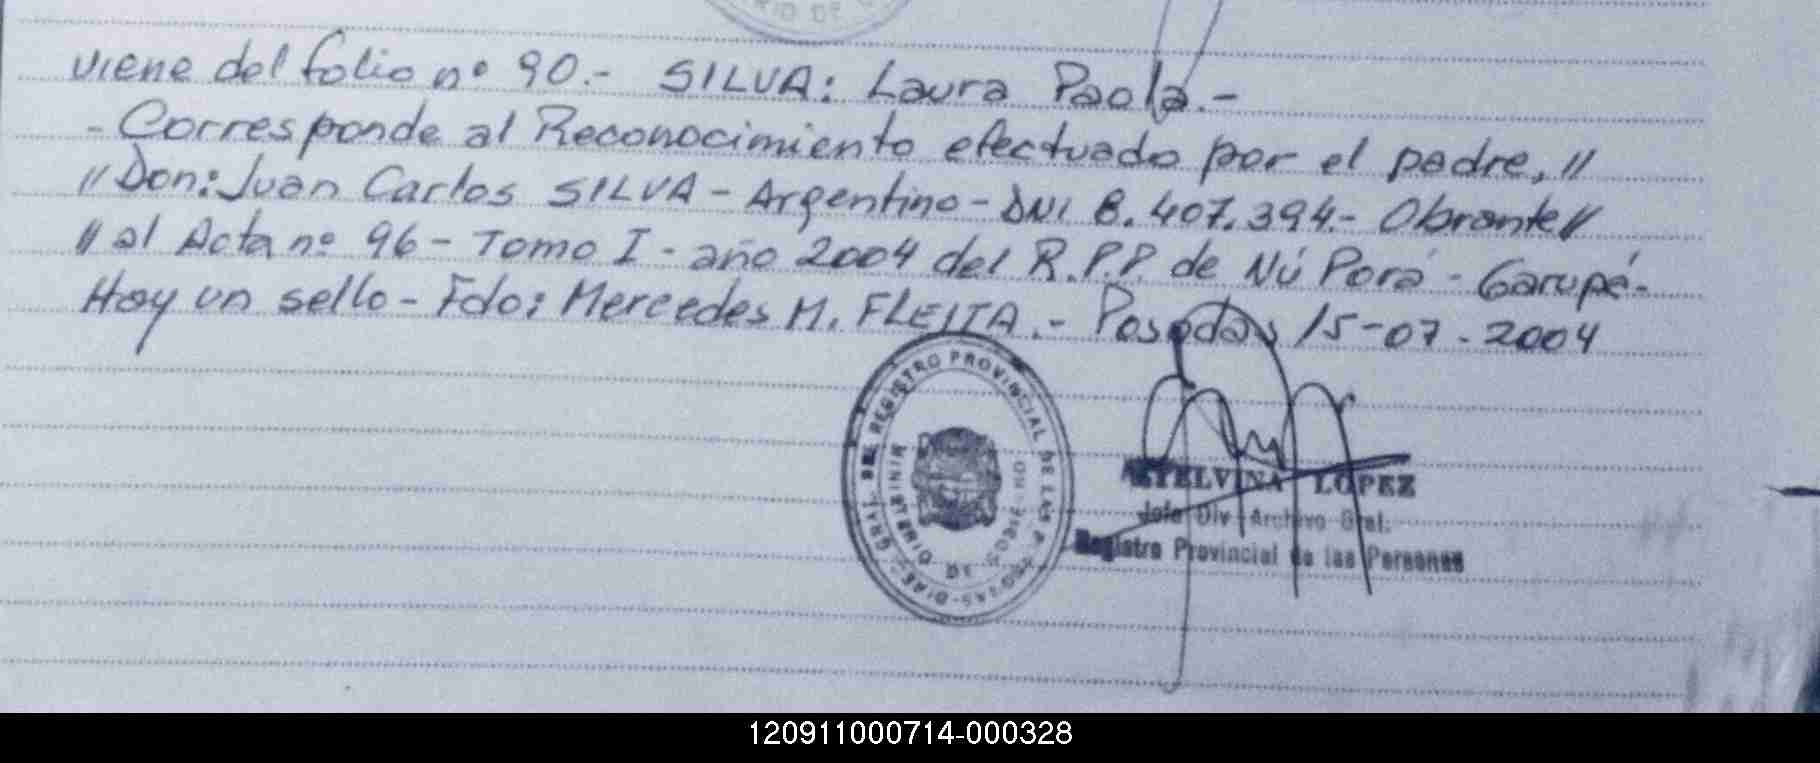 RIO DE
viene del folio nº 90.- SILVA: Laura Paola.-
- Corresponde al Reconocimiento efectuado por el padre, //
// Don: Juan Carlos SILVA - Argentino - DNI 8.407.394.- Obrante //
// al Acta nº 96 - Tomo I - año 2004 del R.P.P. de Ñú Porá - Garupá.-
Hay un sello - Fdo: Mercedes M. FLEITA.- Posadas 15-07-2004
REGISTRO PROVINCIAL DE LAS PERSONAS - DIREC. GRAL. DEL
MINISTERIO DE GOBIERNO
ETELVINA LOPEZ
Jefe Div. Archivo Gral.
Registro Provincial de las Personas
120911000714-000328